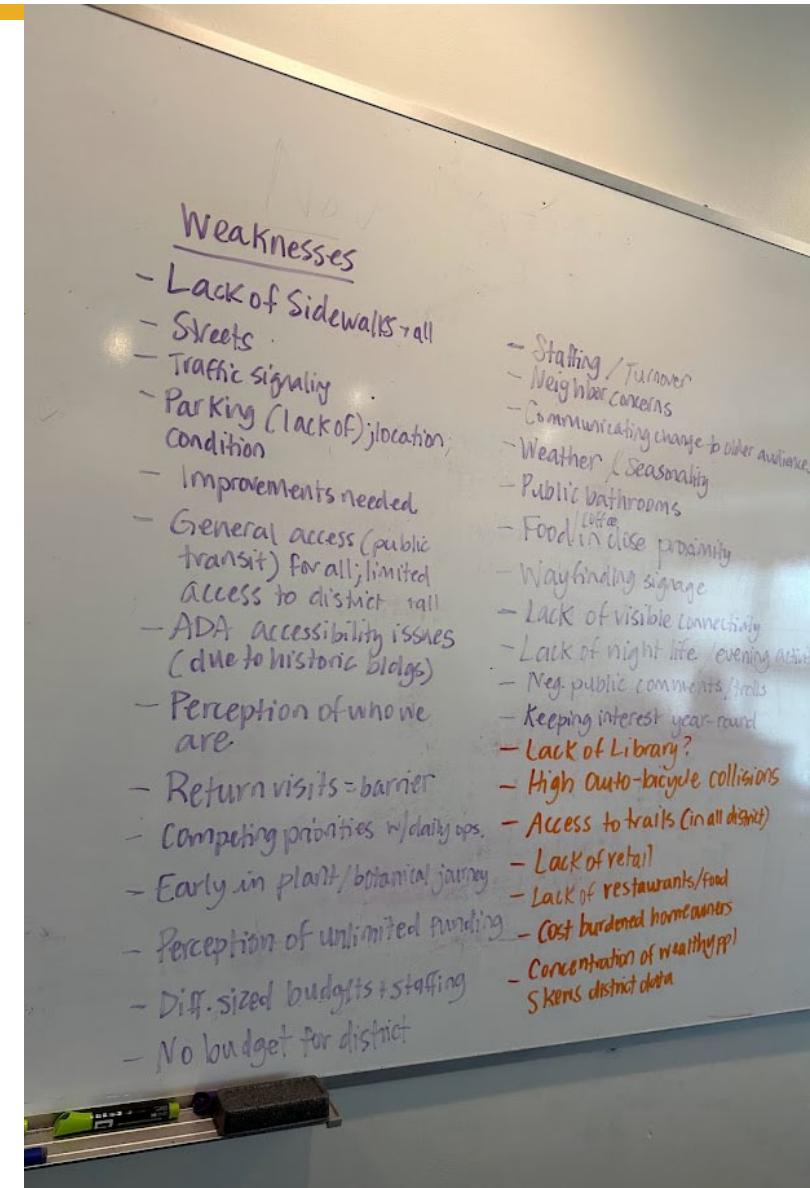 Now
Weaknesses
- Lack of Sidewalks → all
- Streets
- Traffic signaling
- Parking (lack of); location;
condition
- Improvements needed
- General access (public
transit) for all; limited
access to district → all
- ADA accessibility issues
(due to historic bldgs)
- Perception of who we
are
- Return visits = barrier
- Competing priorities w/daily ops.
- Early in plant/botanical journey
- Perception of unlimited funding
- Diff. sized budgets + staffing
- No budget for district
- Staffing / Turnover
- Neighbor concerns
- Communicating change to older audience
- Weather / Seasonality
- Public bathrooms
- Food/coffee in close proximity
- Wayfinding signage
- Lack of visible connectivity
- Lack of night life / evening activit
- Neg. public comments/trolls
- Keeping interest year-round
- Lack of Library?
- High auto-bicycle collisions
- Access to trails (in all district)
- Lack of retail
- Lack of restaurants/food
- Cost burdened homeowners
- Concentration of wealthy ppl
Skews district data